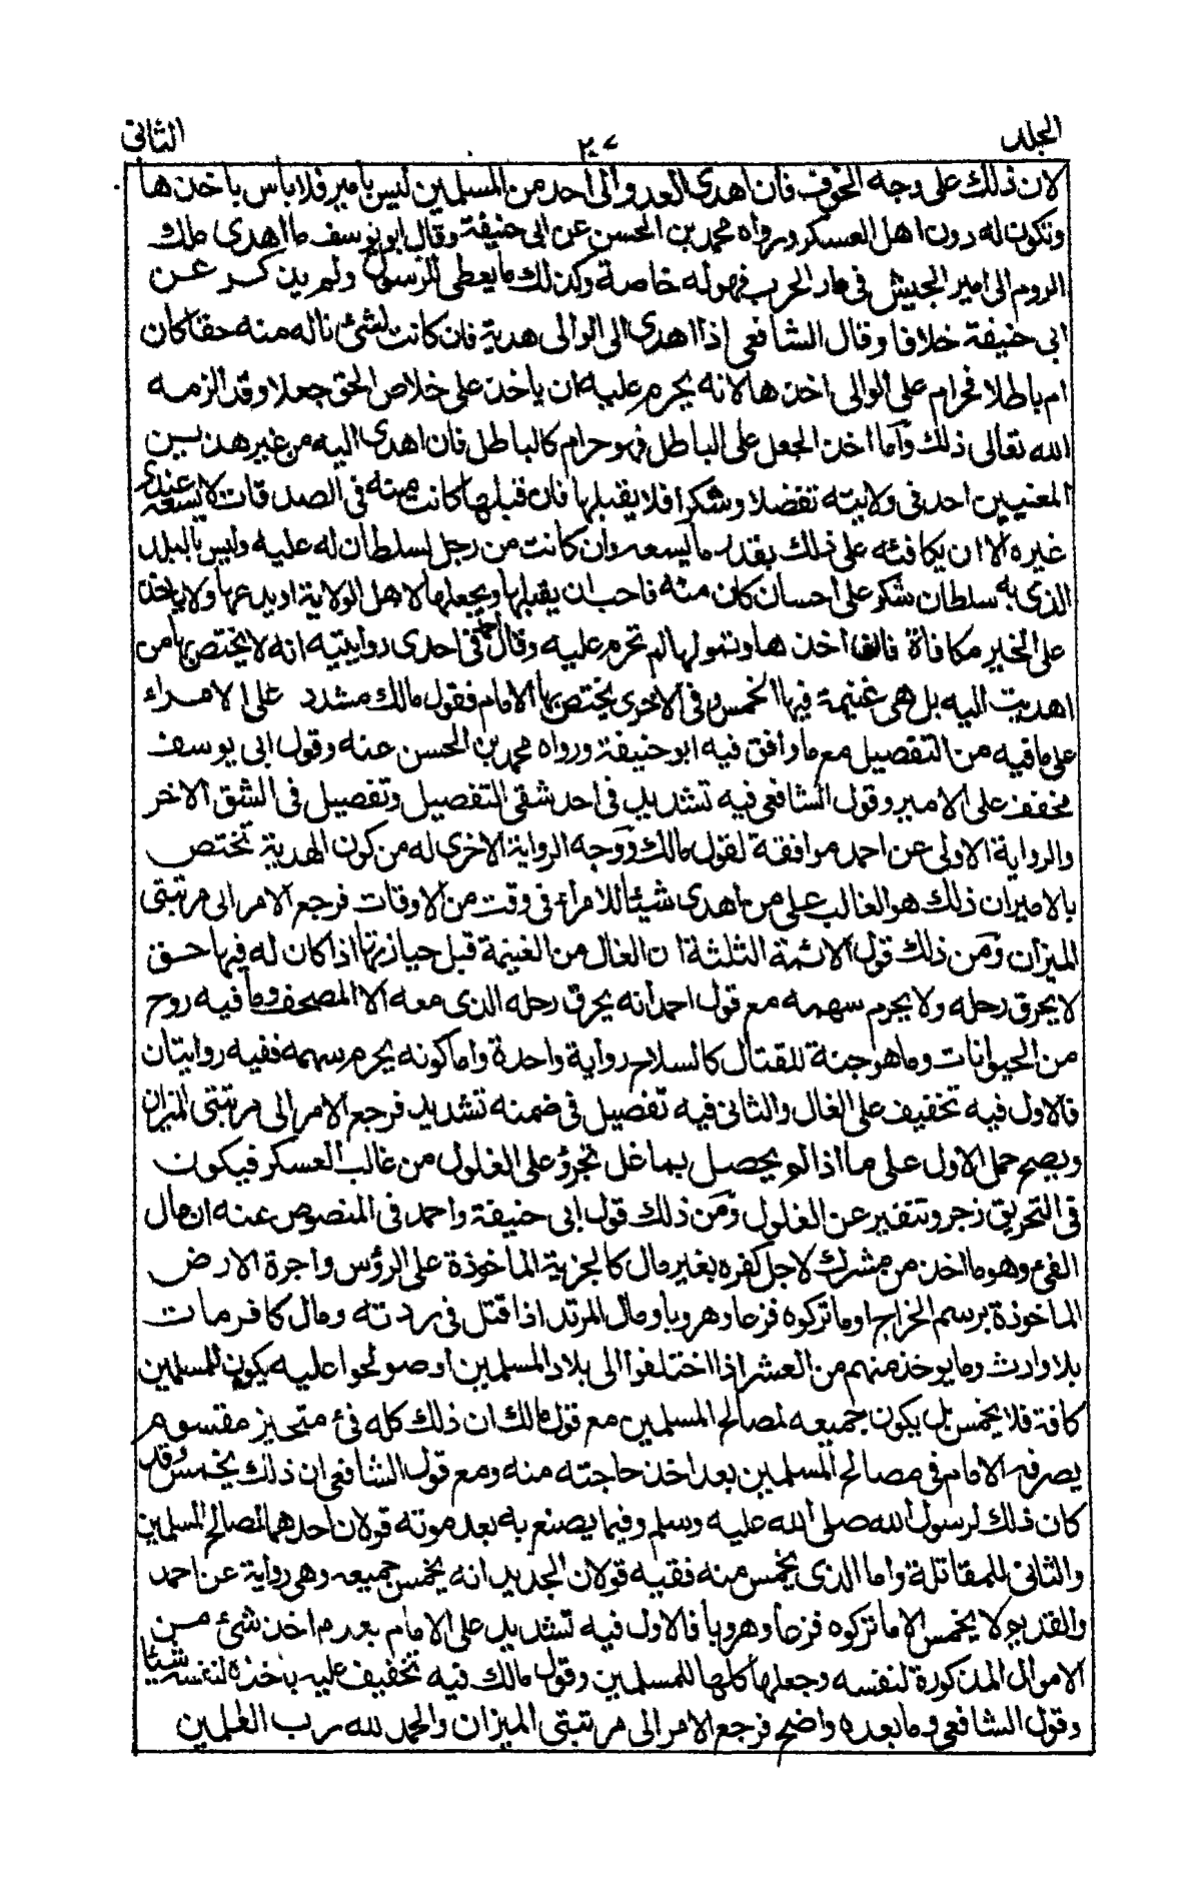 المجلد ٢٠٧ الثانى
لان ذلك على وجه الخوف فان اهدى العدو الى احد من المسلمين ليس بامير فلا باس باخذها
وتكون له دون اهل العسكر ورواه محمد بن الحسن عن ابى حنيفة وقال ابو يوسف ما اهدى ملك
الروم الى امير الجيش فى دار الحرب فهو له خاصة وكذلك ما يعطى للرسول ولم يذكر عن
ابى حنيفة خلافا وقال الشافعى اذا اهدى الى الوالى هدية فان كانت لشئ ناله منه حقا كان
ام باطلا فحرام على الوالى اخذها لانه يحرم عليه ان ياخذ على خلاص الحق جعلا وقد الزمه
الله تعالى ذلك واما اخذ الجعل على الباطل فهو حرام كالباطل فان اهدى اليه من غير هذين
المعنيين احد فى ولايته تفضلا وشكرا فلا يقبلها فان قبلها كانت منه فى الصدقات لا يسعه عندى
غيره الا ان يكافئه على ذلك بقدر ما يسعه وان كانت من رجل لسلطان له عليه وليس بالبلد
الذى به سلطان شكر على احسان كان منه فاحب ان يقبلها ويجعلها لاهل الولاية او يدعها ولا ياخذ
على الخير مكافاة فاذا اخذها وتمولها لم تحرم عليه وقال احمد فى احدى روايتيه انه لا يختص بها من
اهديت اليه بل هى غنيمة فيها الخمس وفى الاخرى يختص بها الامام فقول مالك مشدد على الامراء
على ما فيه من التفصيل مع ما وافق فيه ابو حنيفة ورواه محمد بن الحسن عنه وقول ابى يوسف
مخفف على الامير وقول الشافعى فيه تشديد فى احد شقى التفصيل وتفصيل فى الشق الاخر
والرواية الاولى عن احمد موافقة لقول مالك ووجه الرواية الاخرى له من كون الهدية تختص
بالامير ان ذلك هو الغالب على من اهدى شيئا للامراء فى وقت من الاوقات فرجع الامر الى مرتبتى
الميزان ومن ذلك قول الائمة الثلثة ان الغال من الغنيمة قبل حيازتها اذا كان له فيها حق
لا يحرق رحله ولا يحرم سهمه مع قول احمد انه يحرق رحله الذى معه الا المصحف وما فيه روح
من الحيوانات وما هو جنة للقتال كالسلاح رواية واحدة واما كونه يحرم سهمه ففيه روايتان
فالاول فيه تخفيف على الغال والثانى فيه تفصيل فى ضمنه تشديد فرجع الامر الى مرتبتى الميزان
ويصح حمل الاول على ما اذا لم يحصل بما غل تجرؤ على الغلول من غالب العسكر فيكون
فى التحريق زجر وتنفير عن الغلول ومن ذلك قول ابى حنيفة واحمد فى المنصوص عنه ان مال
الفئ وهو ما اخذ من مشرك لاجل كفره بغير مال كالجزية الماخوذة على الرؤس واجرة الارض
الماخوذة برسم الخراج او ما تركوه فزعا وهروبا ومال المرتد اذا قتل فى ردته ومال كافر مات
بلا وارث وما يوخذ منهم من العشر اذا اختلفوا الى بلاد المسلمين او صولحوا عليه يكون للمسلمين
كافة فلا يخمس بل يكون جميعه لمصالح المسلمين مع قول مالك ان ذلك كله فئ متحيز مقسوم
يصرفه الامام فى مصالح المسلمين بعد اخذ حاجته منه ومع قول الشافعى ان ذلك يخمس وقد
كان ذلك لرسول الله صلى الله عليه وسلم وفيما يصنع به بعد موته قولان احدهما لمصالح المسلمين
والثانى للمقاتلة واما الذى يخمس منه ففيه قولان الجديد انه يخمس جميعه وهى رواية عن احمد
والقديم لا يخمس الا ما تركوه فزعا وهروبا فالاول فيه تشديد على الامام بعدم اخذ شئ من
الاموال المذكورة لنفسه وجعلها كلها للمسلمين وقول مالك فيه تخفيف عليه باخذه لنفسه شيئا
وقول الشافعى وما بعده واضح فرجع الامر الى مرتبتى الميزان والحمد لله رب العلمين